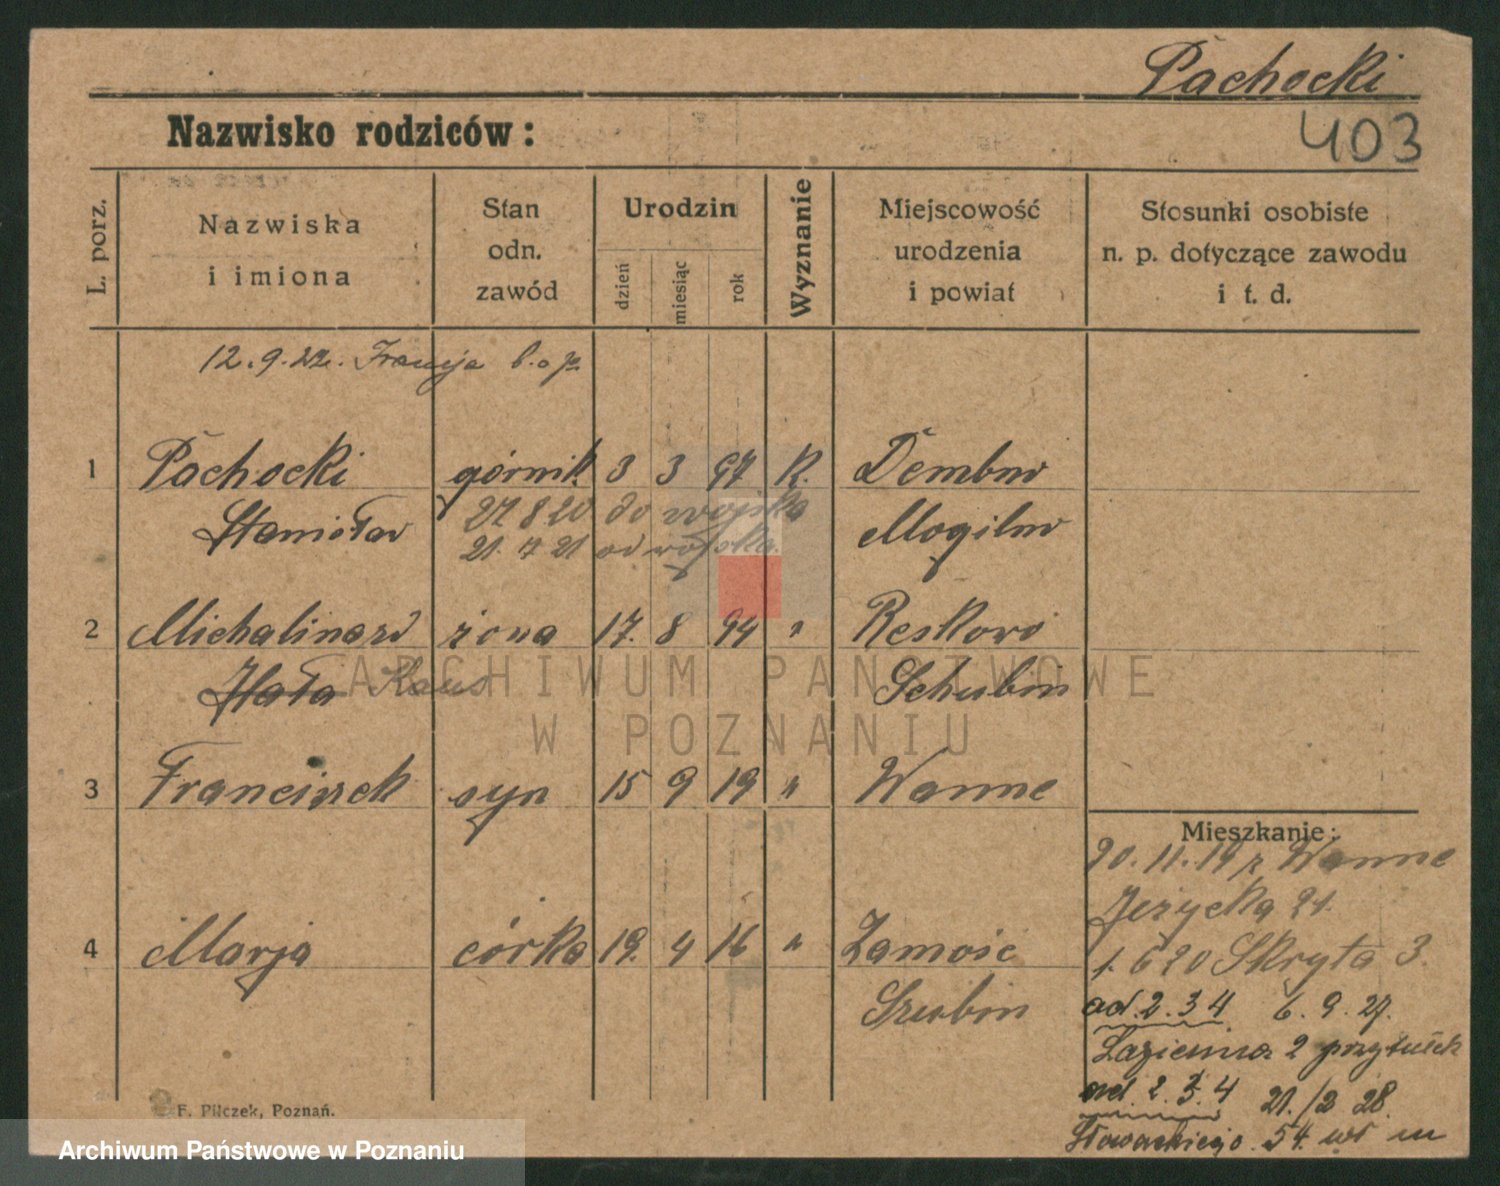 Pachocki
Nazwisko rodziców:
403
L. porz.
Nazwiska
i imiona
Stan
odn.
zawód
Urodzin
dzień
miesiąc
rok
Wyznanie
Miejscowość
urodzenia
i powiat
Stosunki osobiste
n. p. dotyczące zawodu
i t. d.
12.9.22. Francja
1 Pachocki górnik 3 3 97 K. Dembno
Stanisław 27 8 20 do wojska Mogilno
21. 7 21 od wojska.
2 Michalina żona 17. 8 94 " Reskowo
Hała Schubin
3 Franciszek syn 15 9 19 " Wanne
Mieszkanie:
20. 11. 19 z Wanne
Jeżycka 21.
4 Marja córka 19. 4 16 " Zamość
1. 6 20 Skryta 3.
Szubin
ad. 2. 3 4 6. 9. 27.
Łazienna 2 przytułek
ad. 2. 3. 4 21. /3 28.
Słowackiego. 54.
F. Pilczek, Poznań.
ARCHIWUM PAŃSTWOWE
W POZNANIU
Archiwum Państwowe w Poznaniu